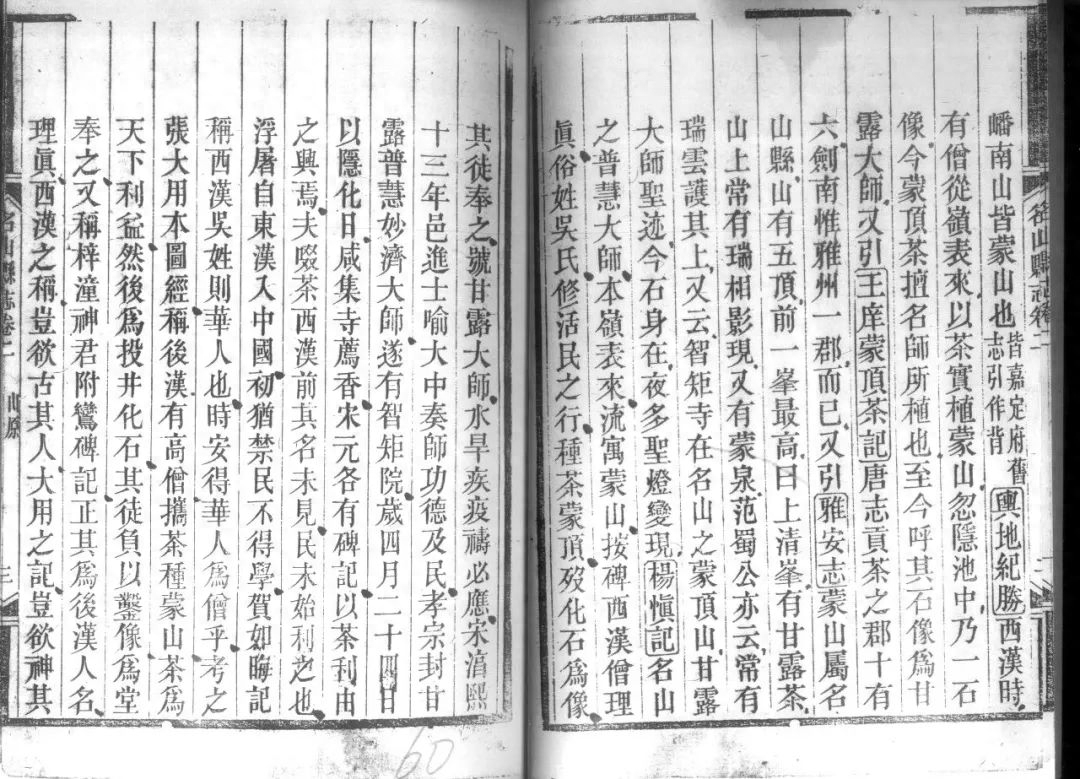 名山縣志卷二
二
蟠南山皆蒙山也皆嘉定府舊志引作背輿地紀勝西漢時
有僧從嶺表來以茶實植蒙山忽隱池中乃一石
像今蒙頂茶擅名師所植也至今呼其石像爲甘
露大師又引王庠蒙頂茶記唐志貢茶之郡十有
六劍南惟雅州一郡而已又引雅安志蒙山屬名
山縣山有五頂前一峯最高曰上清峯有甘露茶
山上常有瑞相影現又有蒙泉范蜀公亦云常有
瑞雲護其上又云智矩寺在名山之蒙頂山甘露
大師聖迹今石身在夜多聖燈變現楊愼記名山
之普慧大師本嶺表來流寓蒙山按碑西漢僧理
眞俗姓吳氏修活民之行種茶蒙頂歿化石爲像
其徒奉之號甘露大師水旱疾疫禱必應宋淳熙
十三年邑進士喻大中奏師功德及民孝宗封甘
露普慧妙濟大師遂有智矩院歲四月二十四日
以隱化日咸集寺薦香宋元各有碑記以茶利由
之興焉夫啜茶西漢前其名未見民未始利之也
浮屠自東漢入中國初猶禁民不得學賀如晦記
稱西漢吳姓則華人也時安得華人爲僧乎考之
張大用本圖經稱後漢有高僧攜茶種蒙山茶爲
天下利益然後爲投井化石其徒負以鑿像爲堂
奉之又稱梓潼神君附鸞碑記正其爲後漢人名
理眞西漢之稱豈欲古其人大用之記豈欲神其
名山縣志卷二
山原
三
60